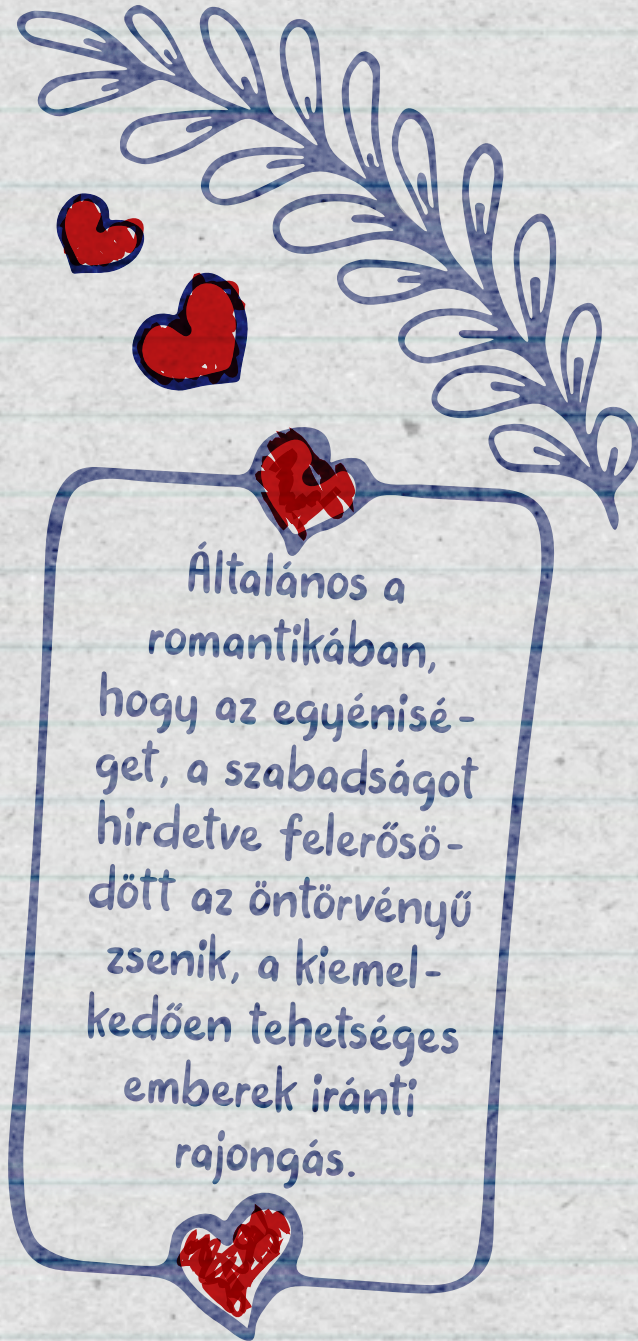 Általános a
romantikában,
hogy az egyénisé-
get, a szabadságot
hirdetve felerősö-
dött az öntörvényű
zsenik, a kiemel-
kedően tehetséges
emberek iránti
rajongás.